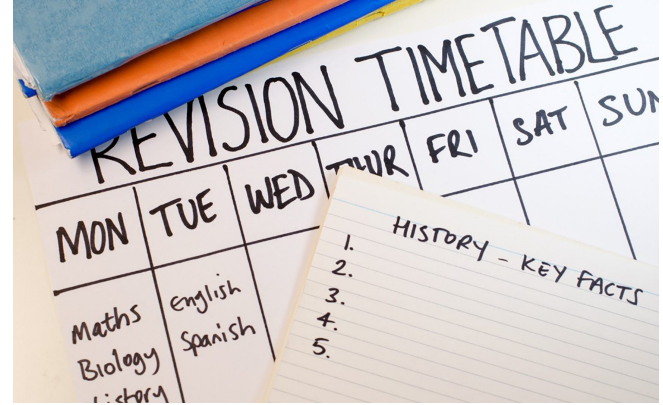 REVISION TIMETABLE
MON TUE WED THUR FRI SAT SUN
Maths
Biology
History
English
Spanish
HISTORY - KEY FACTS
1.
2.
3.
4.
5.